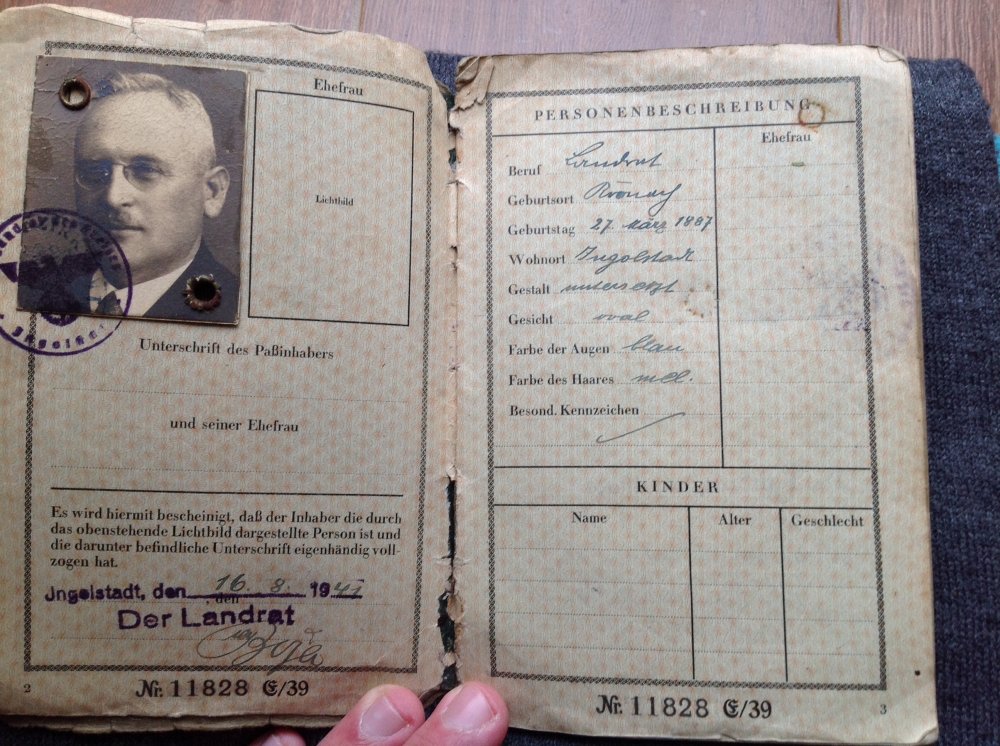 Ehefrau
Lichtbild
Unterschrift des Paßinhabers
und seiner Ehefrau
Es wird hiermit bescheinigt, daß der Inhaber die durch
das obenstehende Lichtbild dargestellte Person ist und
die darunter befindliche Unterschrift eigenhändig voll-
zogen hat.
Jngolstadt, den 16. 8. 1941
, den
Der Landrat
2
Nr. 11828 E/39
PERSONENBESCHREIBUNG
Ehefrau
Beruf Landrat
Geburtsort Kronach
Geburtstag 27. März 1887
Wohnort Ingolstadt
Gestalt untersetzt
Gesicht oval
Farbe der Augen blau
Farbe des Haares mel.
Besond. Kennzeichen
KINDER
Name Alter Geschlecht
Nr. 11828 E/39
3